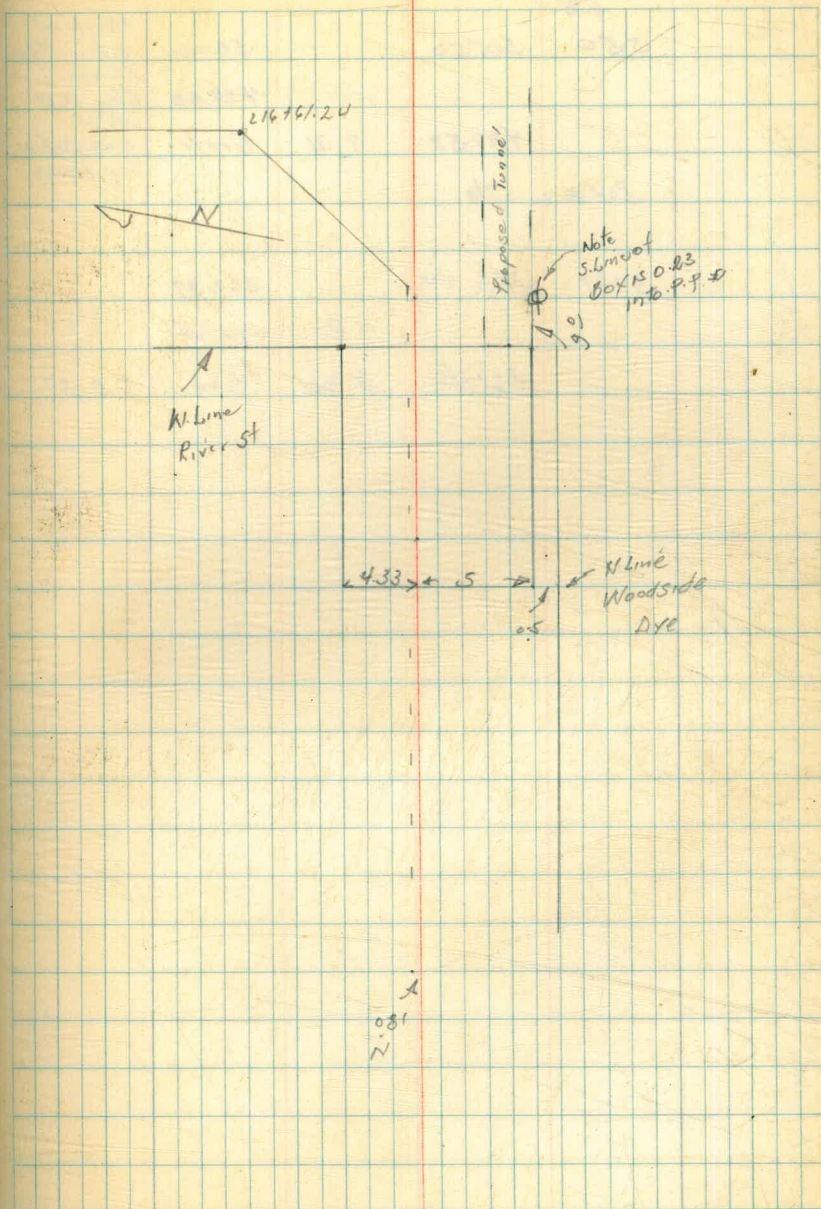 216+61.24
N
Proposed Tunnel
Note
S. Line of
Box is 0.23
into P.P.
90
W. Line
River St
4.33
5
0.5
N Line
Woodside
Dye